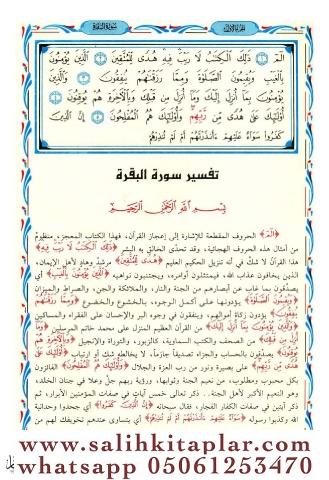 سورة البقرة
الجزء الأول
الٓمٓ ١ ذَٰلِكَ ٱلْكِتَٰبُ لَا رَيْبَ فِيهِ هُدًى لِّلْمُتَّقِينَ ٢ ٱلَّذِينَ يُؤْمِنُونَ
بِٱلْغَيْبِ وَيُقِيمُونَ ٱلصَّلَوٰةَ وَمِمَّا رَزَقْنَٰهُمْ يُنفِقُونَ ٣ وَٱلَّذِينَ
يُؤْمِنُونَ بِمَآ أُنزِلَ إِلَيْكَ وَمَآ أُنزِلَ مِن قَبْلِكَ وَبِٱلْءَاخِرَةِ هُمْ يُوقِنُونَ ٤
أُو۟لَٰٓئِكَ عَلَىٰ هُدًى مِّن رَّبِّهِمْ وَأُو۟لَٰٓئِكَ هُمُ ٱلْمُفْلِحُونَ ٥ إِنَّ ٱلَّذِينَ
كَفَرُوا۟ سَوَآءٌ عَلَيْهِمْ ءَأَنذَرْتَهُمْ أَمْ لَمْ تُنذِرْهُمْ
تفسير سورة البقرة
بسم الله الرحمن الرحيم
﴿الٓمٓ﴾ الحروف المقطعة للإشارة إلى إعجاز القرآن، فهذا الكتاب المعجز، منظوم
من أمثال هذه الحروف الهجائية، وقد تحدَّى الخالق به البشر ﴿ذَٰلِكَ ٱلْكِتَٰبُ لَا رَيْبَ فِيهِ﴾
هذا القرآن لا شك في أنه تنزيل الحكيم العليم ﴿هُدًى لِّلْمُتَّقِينَ﴾ مرشدٌ وهادٍ لأهل الإيمان،
الذين يخافون عذاب الله، فيمتثلون أوامره، ويجتنبون نواهيه ﴿ٱلَّذِينَ يُؤْمِنُونَ بِٱلْغَيْبِ﴾ أي
يصدّقون بما غاب عن أبصارهم من الجنة والنار، والملائكة والجن، والصراط والميزان
﴿وَيُقِيمُونَ ٱلصَّلَوٰةَ﴾ يؤدونها على أكمل الوجوه، بالخشوع والخضوع ﴿وَمِمَّا رَزَقْنَٰهُمْ
يُنفِقُونَ﴾ يؤدون زكاة أموالهم، وينفقون في وجوه البر والإحسان على الفقراء والمساكين
﴿وَٱلَّذِينَ يُؤْمِنُونَ بِمَآ أُنزِلَ إِلَيْكَ﴾ من القرآن العظيم المنزل على محمد خاتم المرسلين ﴿وَمَآ
أُنزِلَ مِن قَبْلِكَ﴾ من الصحف والكتب السماوية، كالزبور، والتوراة والإنجيل ﴿وَبِٱلْءَاخِرَةِ هُمْ
يُوقِنُونَ﴾ يصدّقون بالحساب والجزاء تصديقاً جازماً، لا يخالطه شك أو ارتياب ﴿أُو۟لَٰٓئِكَ عَلَىٰ
هُدًى مِّن رَّبِّهِمْ﴾ على بصيرة ونور من رب العزة والجلال ﴿وَأُو۟لَٰٓئِكَ هُمُ ٱلْمُفْلِحُونَ﴾ الفائزون
بكل محبوب ومطلوب، من نعيم الجنة وثوابها، ورؤية ربهم جلّ وعلا في جنان الخلد،
وهو النعيم الأكبر لأهل الجنة.. ذكر تعالى خمس آيات في صفات المؤمنين الأبرار، ثم
ذكر آيتين في صفات الكفار الفجار، فقال سبحانه ﴿إِنَّ ٱلَّذِينَ كَفَرُوا۟﴾ أي جحدوا وحدانية
الله وكذبوا رسوله ﴿سَوَآءٌ عَلَيْهِمْ ءَأَنذَرْتَهُمْ أَمْ لَمْ تُنذِرْهُمْ﴾ أي يتساوى عندهم تخويفك لهم من
www.salihkitaplar.com
whatsapp 05061253470